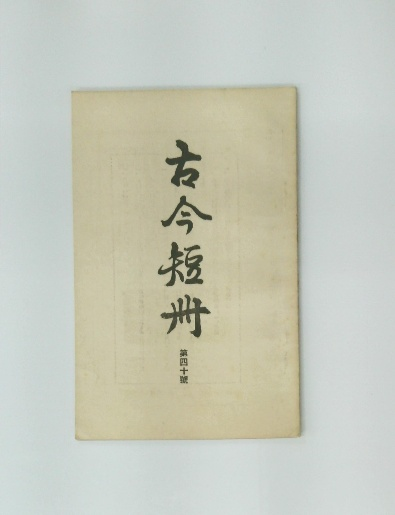 古今短冊
第四十號